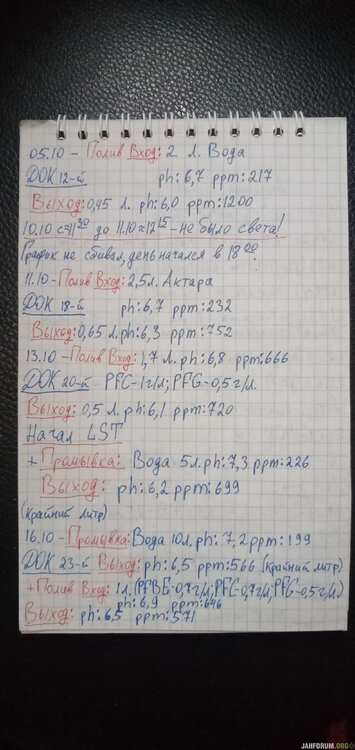 05.10 - Полив Вход: 2 л. Вода
ДОК 12-й ph: 6,7 ppm: 217
Выход: 0,45 л. ph: 6,0 ppm: 1200
10.10 с 11:30 до 11.10 в 12:15 - не было света!
График не сбивал, день начался в 18:00.
11.10 - Полив Вход: 2,5 л. Актара
ДОК 18-й ph: 6,7 ppm: 232
Выход: 0,65 л. ph: 6,3 ppm: 752
13.10 - Полив Вход: 1,7 л. ph: 6,8 ppm: 666
ДОК 20-й PFC-1 г/л; PFG-0,5 г/л.
Выход: 0,5 л. ph: 6,1 ppm: 720
Начал LST
+ Промывка: Вода 5 л. ph: 7,3 ppm: 226
Выход: ph: 6,2 ppm: 699
(крайний литр)
16.10 - Промывка: Вода 10 л. ph: 7,2 ppm: 199
ДОК 23-й Выход: ph: 6,5 ppm: 566 (крайний литр)
+ Полив Вход: 1 л. (PFBE-0,7 г/л; PFC-0,7 г/л; PFG-0,5 г/л)
ph: 6,9 ppm: 646
Выход: ph: 6,5 ppm: 571
JAHFORUM.ORG